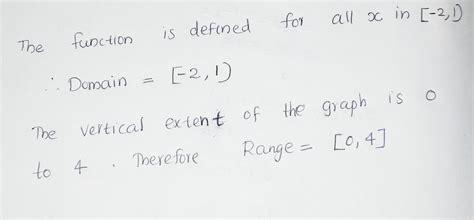 The function is defined for all x in [-2,1)
∴ Domain = [-2, 1)
The vertical extent of the graph is 0
to 4 . Therefore Range = [0,4]